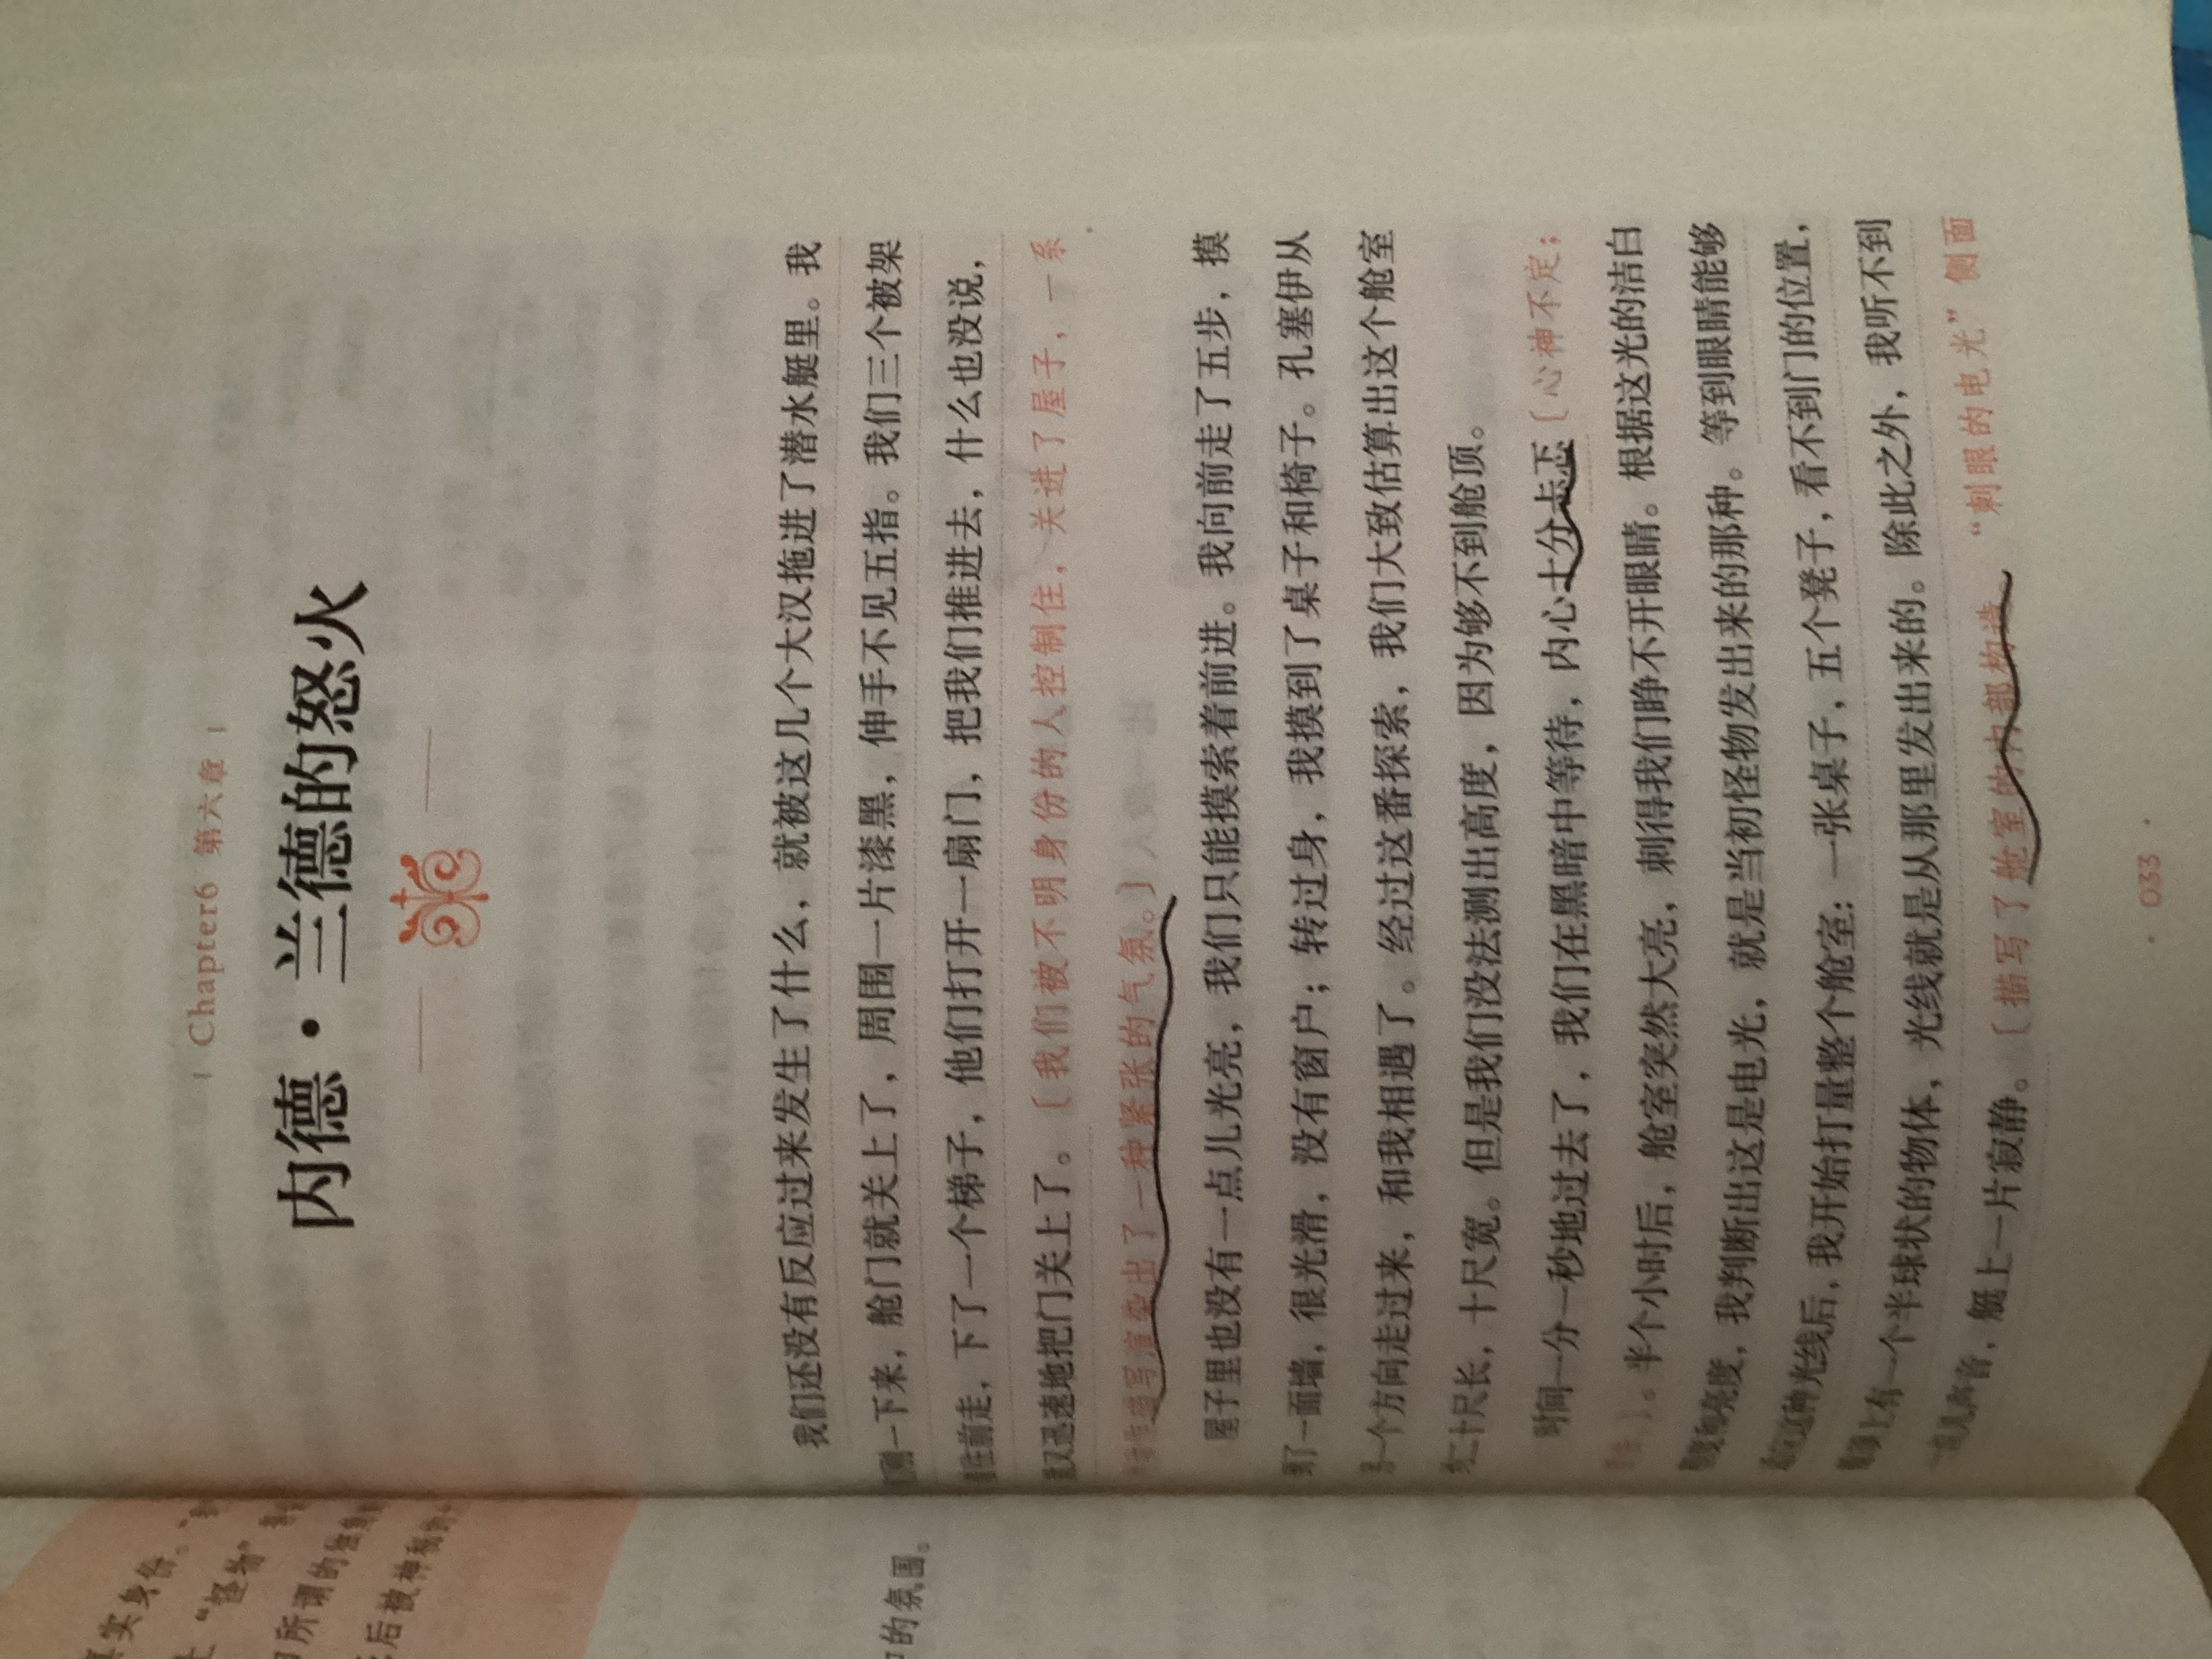 | Chapter6 第六章 |
内德·兰德的怒火
我们还没有反应过来发生了什么，就被这几个大汉拖进了潜水艇里。我
一下来，舱门就关上了，周围一片漆黑，伸手不见五指。我们三个被架
前走，下了一个梯子，他们打开一扇门，把我们推进去，什么也没说，
又迅速地把门关上了。〔我们被不明身份的人控制住，关进了屋子，一系
描写渲染出了一种紧张的气氛。〕
屋子里也没有一点儿光亮，我们只能摸索着前进。我向前走了五步，摸
了一面墙，很光滑，没有窗户；转过身，我摸到了桌子和椅子。孔塞伊从
一个方向走过来，和我相遇了。经过这番探索，我们大致估算出这个舱室
二十尺长，十尺宽。但是我们没法测出高度，因为够不到舱顶。
时间一分一秒地过去了，我们在黑暗中等待，内心十分忐忑〔心神不定；
。半个小时后，舱室突然大亮，刺得我们睁不开眼睛。根据这光的洁白
和亮度，我判断出这是电光，就是当初怪物发出来的那种。等到眼睛能够
这种光线后，我开始打量整个舱室：一张桌子，五个凳子，看不到门的位置，
上有一个半球状的物体，光线就是从那里发出来的。除此之外，我听不到
声音，艇上一片寂静。〔描写了舱室的内部构造。“刺眼的电光”侧面
· 033 ·
真实身份。
“怪物”
所谓的
后被神秘
的氛围。